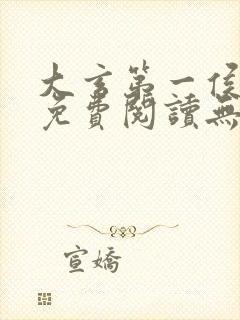 大言第一侯
免費閱讀無
宣嬌